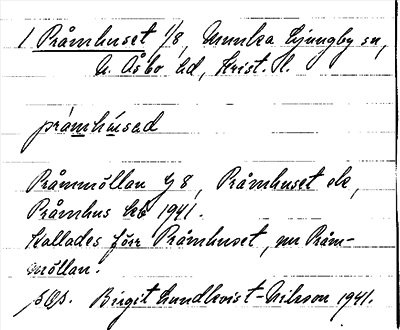 1 Pråmhuset 1/8, Munka Ljungby sn,
N. Åsbo hd, Krist. l.
pråmhúsəd
Pråmmöllan 1/8, Pråmhuset ek,
Pråmhus kb 1941.
Kallades förr Pråmhuset, nu Pråm-
möllan.
Birgit Lundkvist-Nilsson 1941.